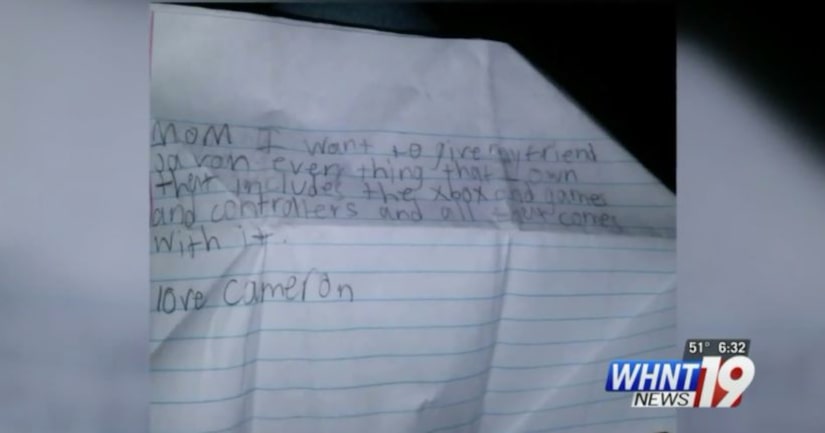 MOM I want to give my friend
Javon every thing that I own
that includes the xbox and games
and controllers and all that comes
with it.
love cameron
51° 6:32
WHNT 19
NEWS